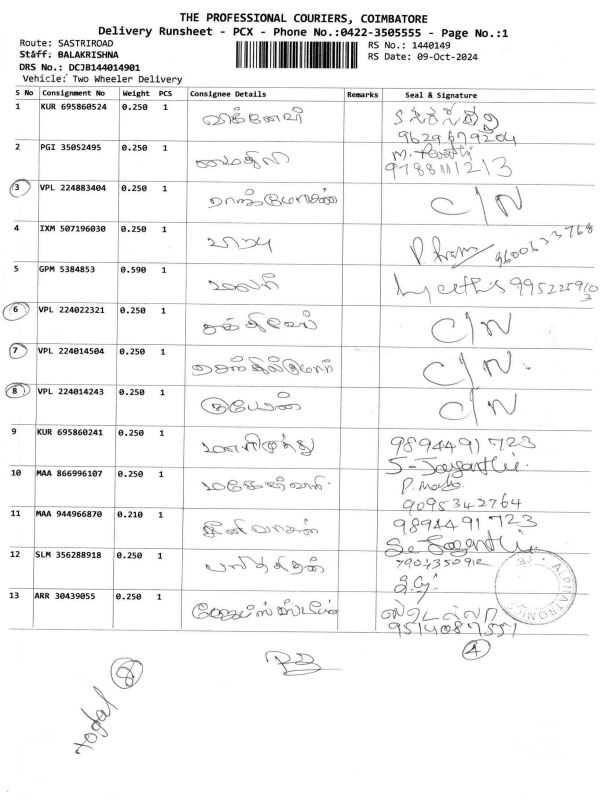 THE PROFESSIONAL COURIERS, COIMBATORE
Delivery Runsheet - PCX - Phone No.:0422-3505555 - Page No.:1
Route: SASTRIROAD RS No.: 1440149
Staff: BALAKRISHNA RS Date: 09-Oct-2024
DRS No.: DCJB144014901
Vehicle: Two Wheeler Delivery
S No Consignment No Weight PCS Consignee Details Remarks Seal & Signature
1 KUR 695860524 0.250 1 விக்னேஷ்
9629679204
2 PGI 35052495 0.250 1 மைதிலி
9788111213
3 VPL 224883404 0.250 1 ராஜ்மோகன் C/N
4 IXM 507196030 0.250 1 பாபு 9600633768
5 GPM 5384853 0.590 1
6 VPL 224022321 0.250 1 சக்திவேல் C/N
7 VPL 224014504 0.250 1 செந்தில்குமார் C/N.
8 VPL 224014243 0.250 1 C/N
9 KUR 695860241 0.250 1 மாரிமுத்து 9894491723
S-Jayanthi.
10 MAA 866996107 0.250 1 மகேஸ்வரி
9095342764
11 MAA 944966870 0.210 1 சீனிவாசன் 9894491723
12 SLM 356288918 0.250 1 7904350912
13 ARR 30439055 0.250 1
9514087551
4
total 8